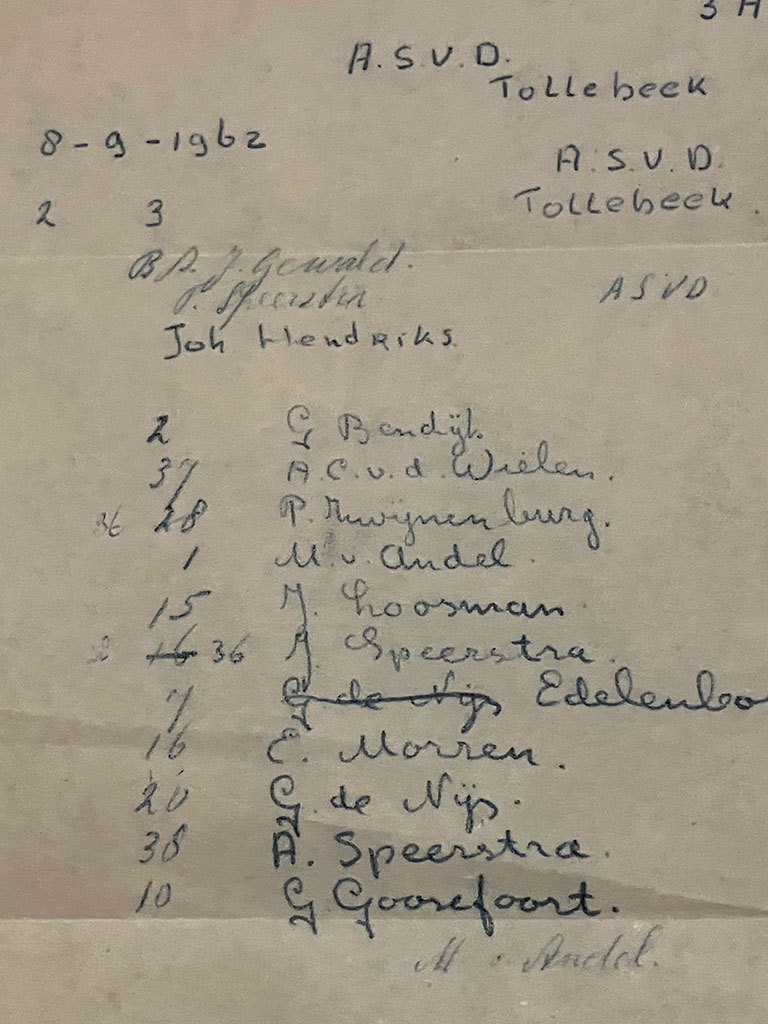 3 A
A.S.V.D.
Tollebeek
8-9-1962
A.S.V.D.
Tollebeek.
2 3
B A. J. Gewald.
Speerstra
ASVD
Joh Hendriks.
2 G Bendijk
37 A.C.v.d. Wielen.
36 28 P. Zwijnenburg.
1 M.v. Andel.
15 J. Loosman
16 36 J Speerstra.
7 G de Nijs Edelenbo
16 E. Morren.
20 G. de Nijs.
38 A. Speerstra.
10 G Goosefoort.
M v Andel.